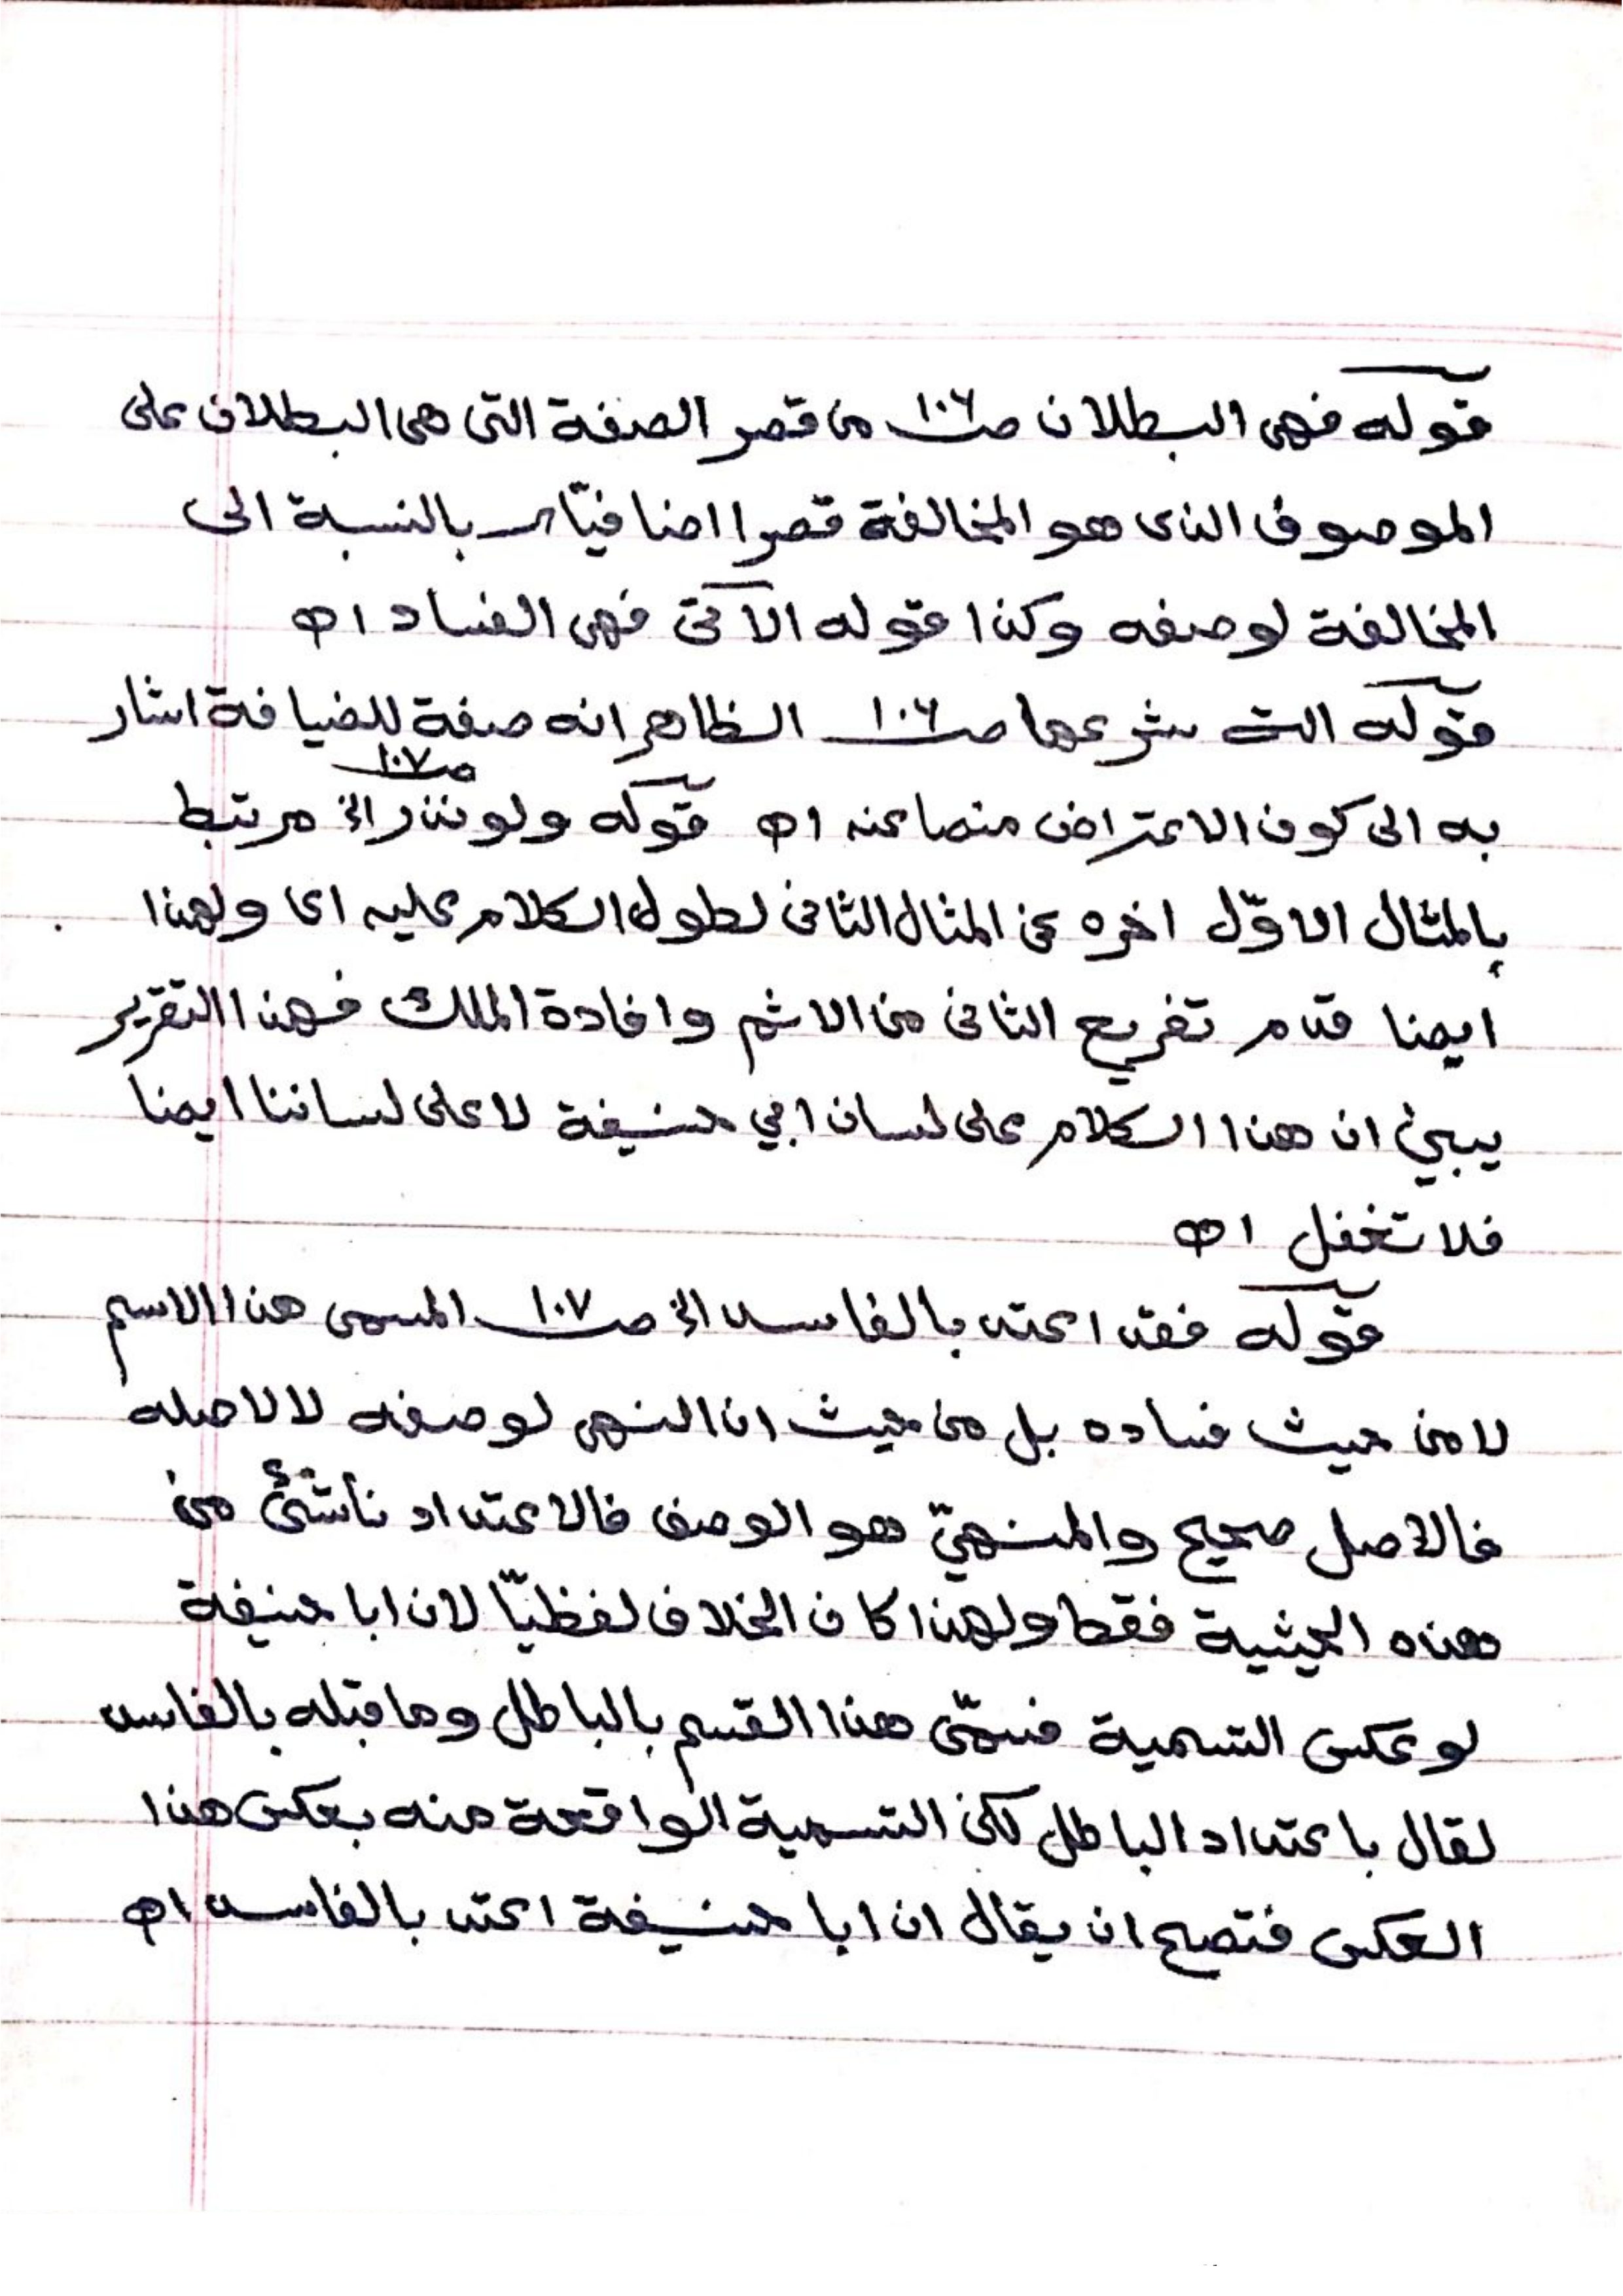 قوله فهى البطلان صـ١٠٦ من قصر الصفة التى هى البطلان على
الموصوف الذى هو المخالفة قصرا اضافيّا بالنسبة الى
المخالفة لوصفه وكذا قوله الآتى فهى الفساد اھ
قوله التى شرعها صـ١٠٦ الظاهر انه صفة للضيافة اشار
به الى كون الاعتراض منصا عنه اھ قوله ولو نذر الخ صـ١٠٧ مرتبط
بالمثال الاوّل اخره عن المثال الثانى لطول الكلام عليه اى ولهذا
ايضا قدم تفريع الثانى من الاثم وافادة الملك فهذا التقرير
يبين ان هذا الكلام على لسان ابي حنيفة لا على لساننا ايضا
فلا تغفل اھ
قوله فقد اعتد بالفاسد الخ صـ١٠٧ المسمى هذا الاسم
لا من حيث فساده بل من حيث ان النهى لوصفه لا لاصله
فالاصل صحيح والمنهيّ هو الوصف فالاعتداد ناشئ من
هذه الحيثية فقط ولهذا كان الخلاف لفظيّا لان ابا حنيفة
لو عكس التسمية فسمّى هذا القسم بالباطل وما قبله بالفاسد
لقال باعتداد الباطل لكن التسمية الواقعة منه بعكس هذا
العكس فتصح ان يقال ان ابا حنيفة اعتد بالفاسد اھ